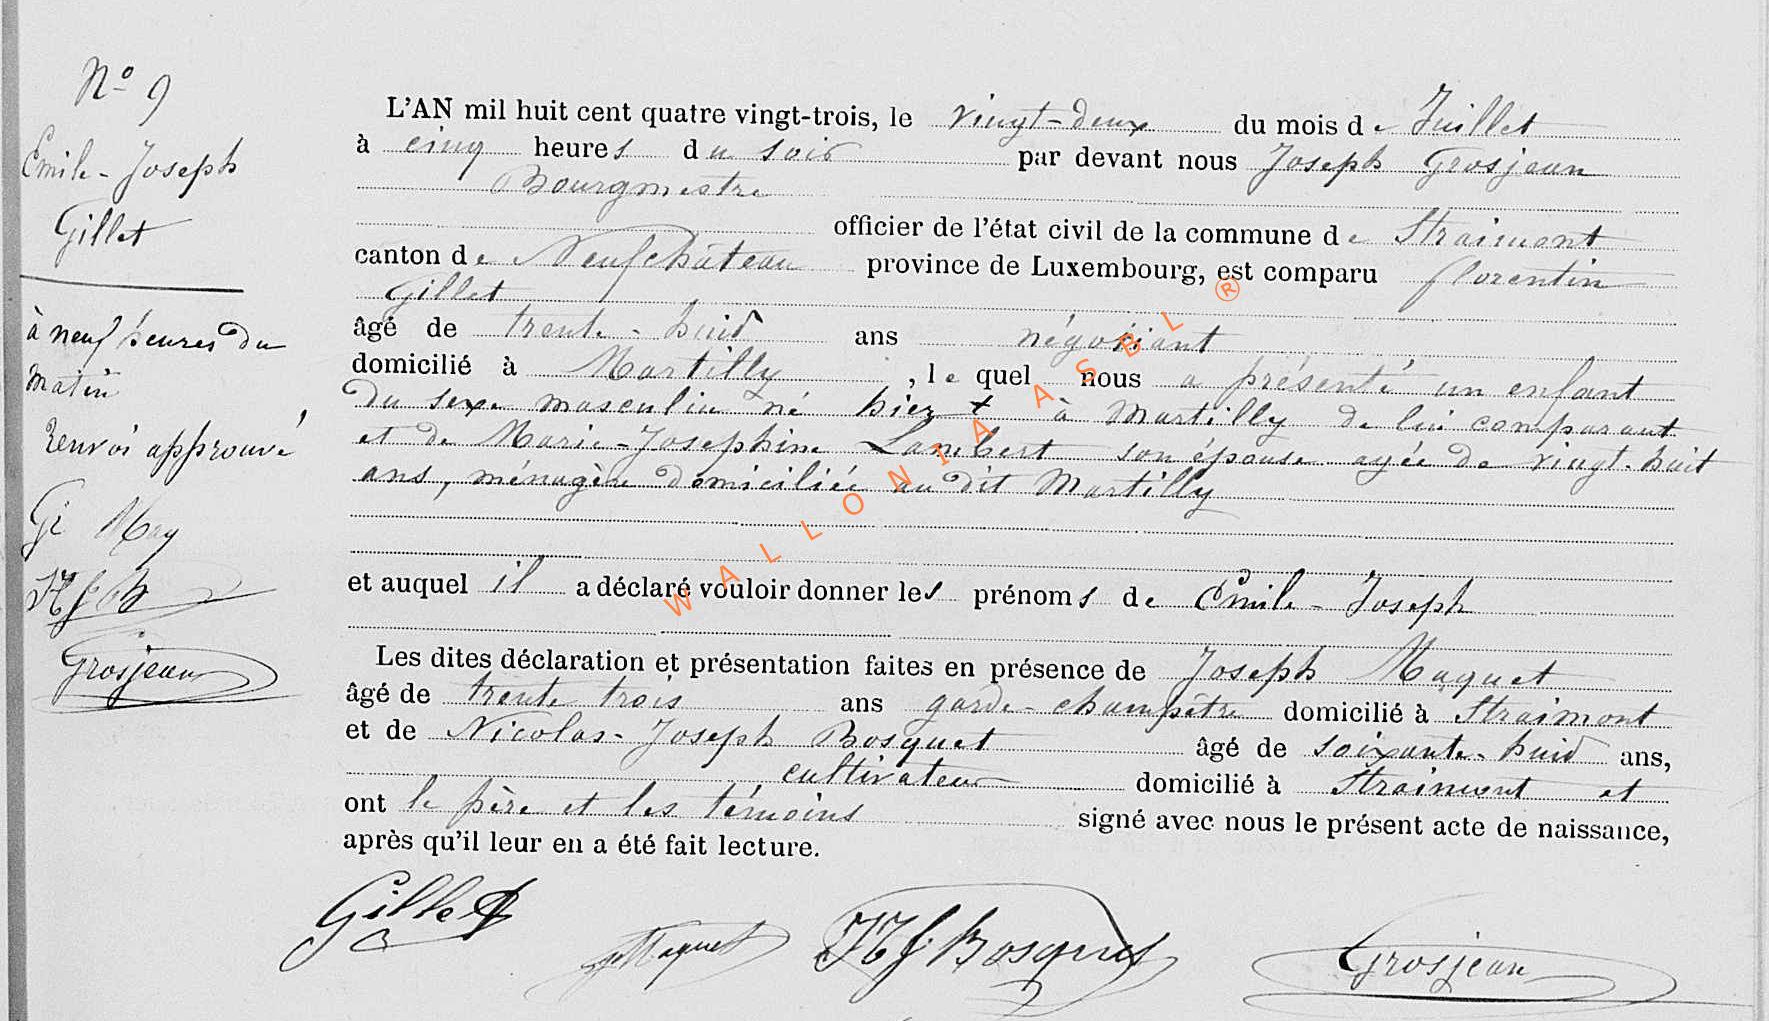 Nº 9
Emile-Joseph
Gillet
à neuf heures du
matin
Renvoi approuvé
Gi May
NJB
Grosjean
L'AN mil huit cent quatre vingt-trois, le vingt-deux du mois de Juillet
à cinq heures du soir par devant nous Joseph Grosjean
Bourgmestre
officier de l'état civil de la commune de Straimont
canton de Neufchâteau province de Luxembourg, est comparu florentin
Gillet
âgé de trente-huit ans négociant
domicilié à Martilly, lequel nous a présenté un enfant
du sexe masculin né hier + à Martilly de lui comparant
et de Marie-Josephine Lambert son épouse agée de vingt-huit
ans, ménagère domiciliée au dit Martilly
et auquel il a déclaré vouloir donner les prénoms de Emile-Joseph
Les dites déclaration et présentation faites en présence de Joseph Maquet
âgé de trente trois ans garde-champêtre domicilié à Straimont
et de Nicolas-Joseph Bosquet âgé de soixante-huit ans,
cultivateur domicilié à Straimont et
ont le père et les témoins signé avec nous le présent acte de naissance,
après qu'il leur en a été fait lecture.
Gillet Maquet NJ Bosquet Grosjean
WALLONIA ASBL ®